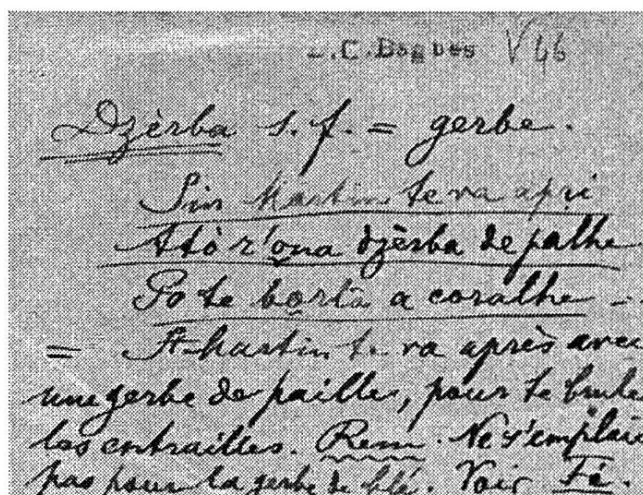 L.C. Bagnes V 46
Dzèrba s.f. = gerbe.
Sin Martin te va apri
Atò r'ona dzèrba de palhe
Po te borlâ a coralhe -
= St-Martin te va après avec
une gerbe de pailles, pour te brule
les entrailles. Rem. Ne s'emploie
pas pour la gerbe de blé. Voir Fé.